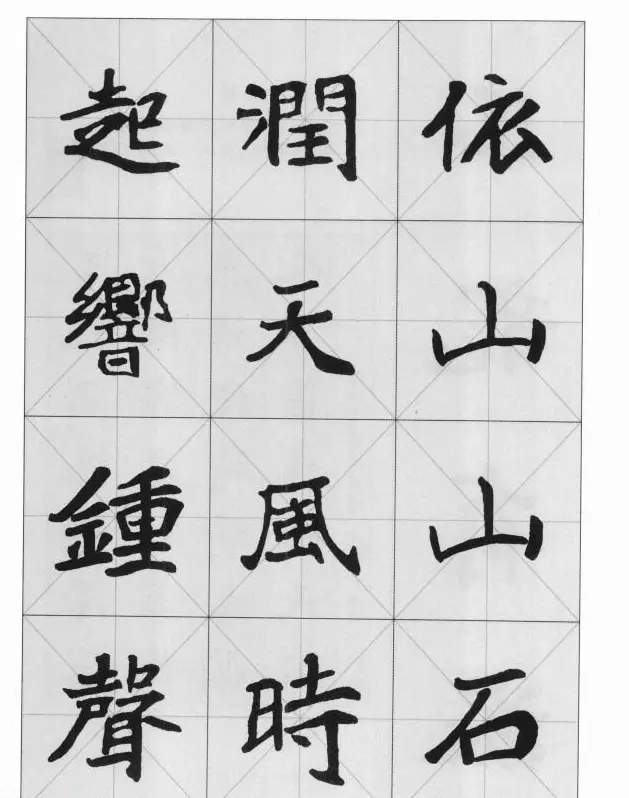 依山山石
潤天風時
起響鍾聲